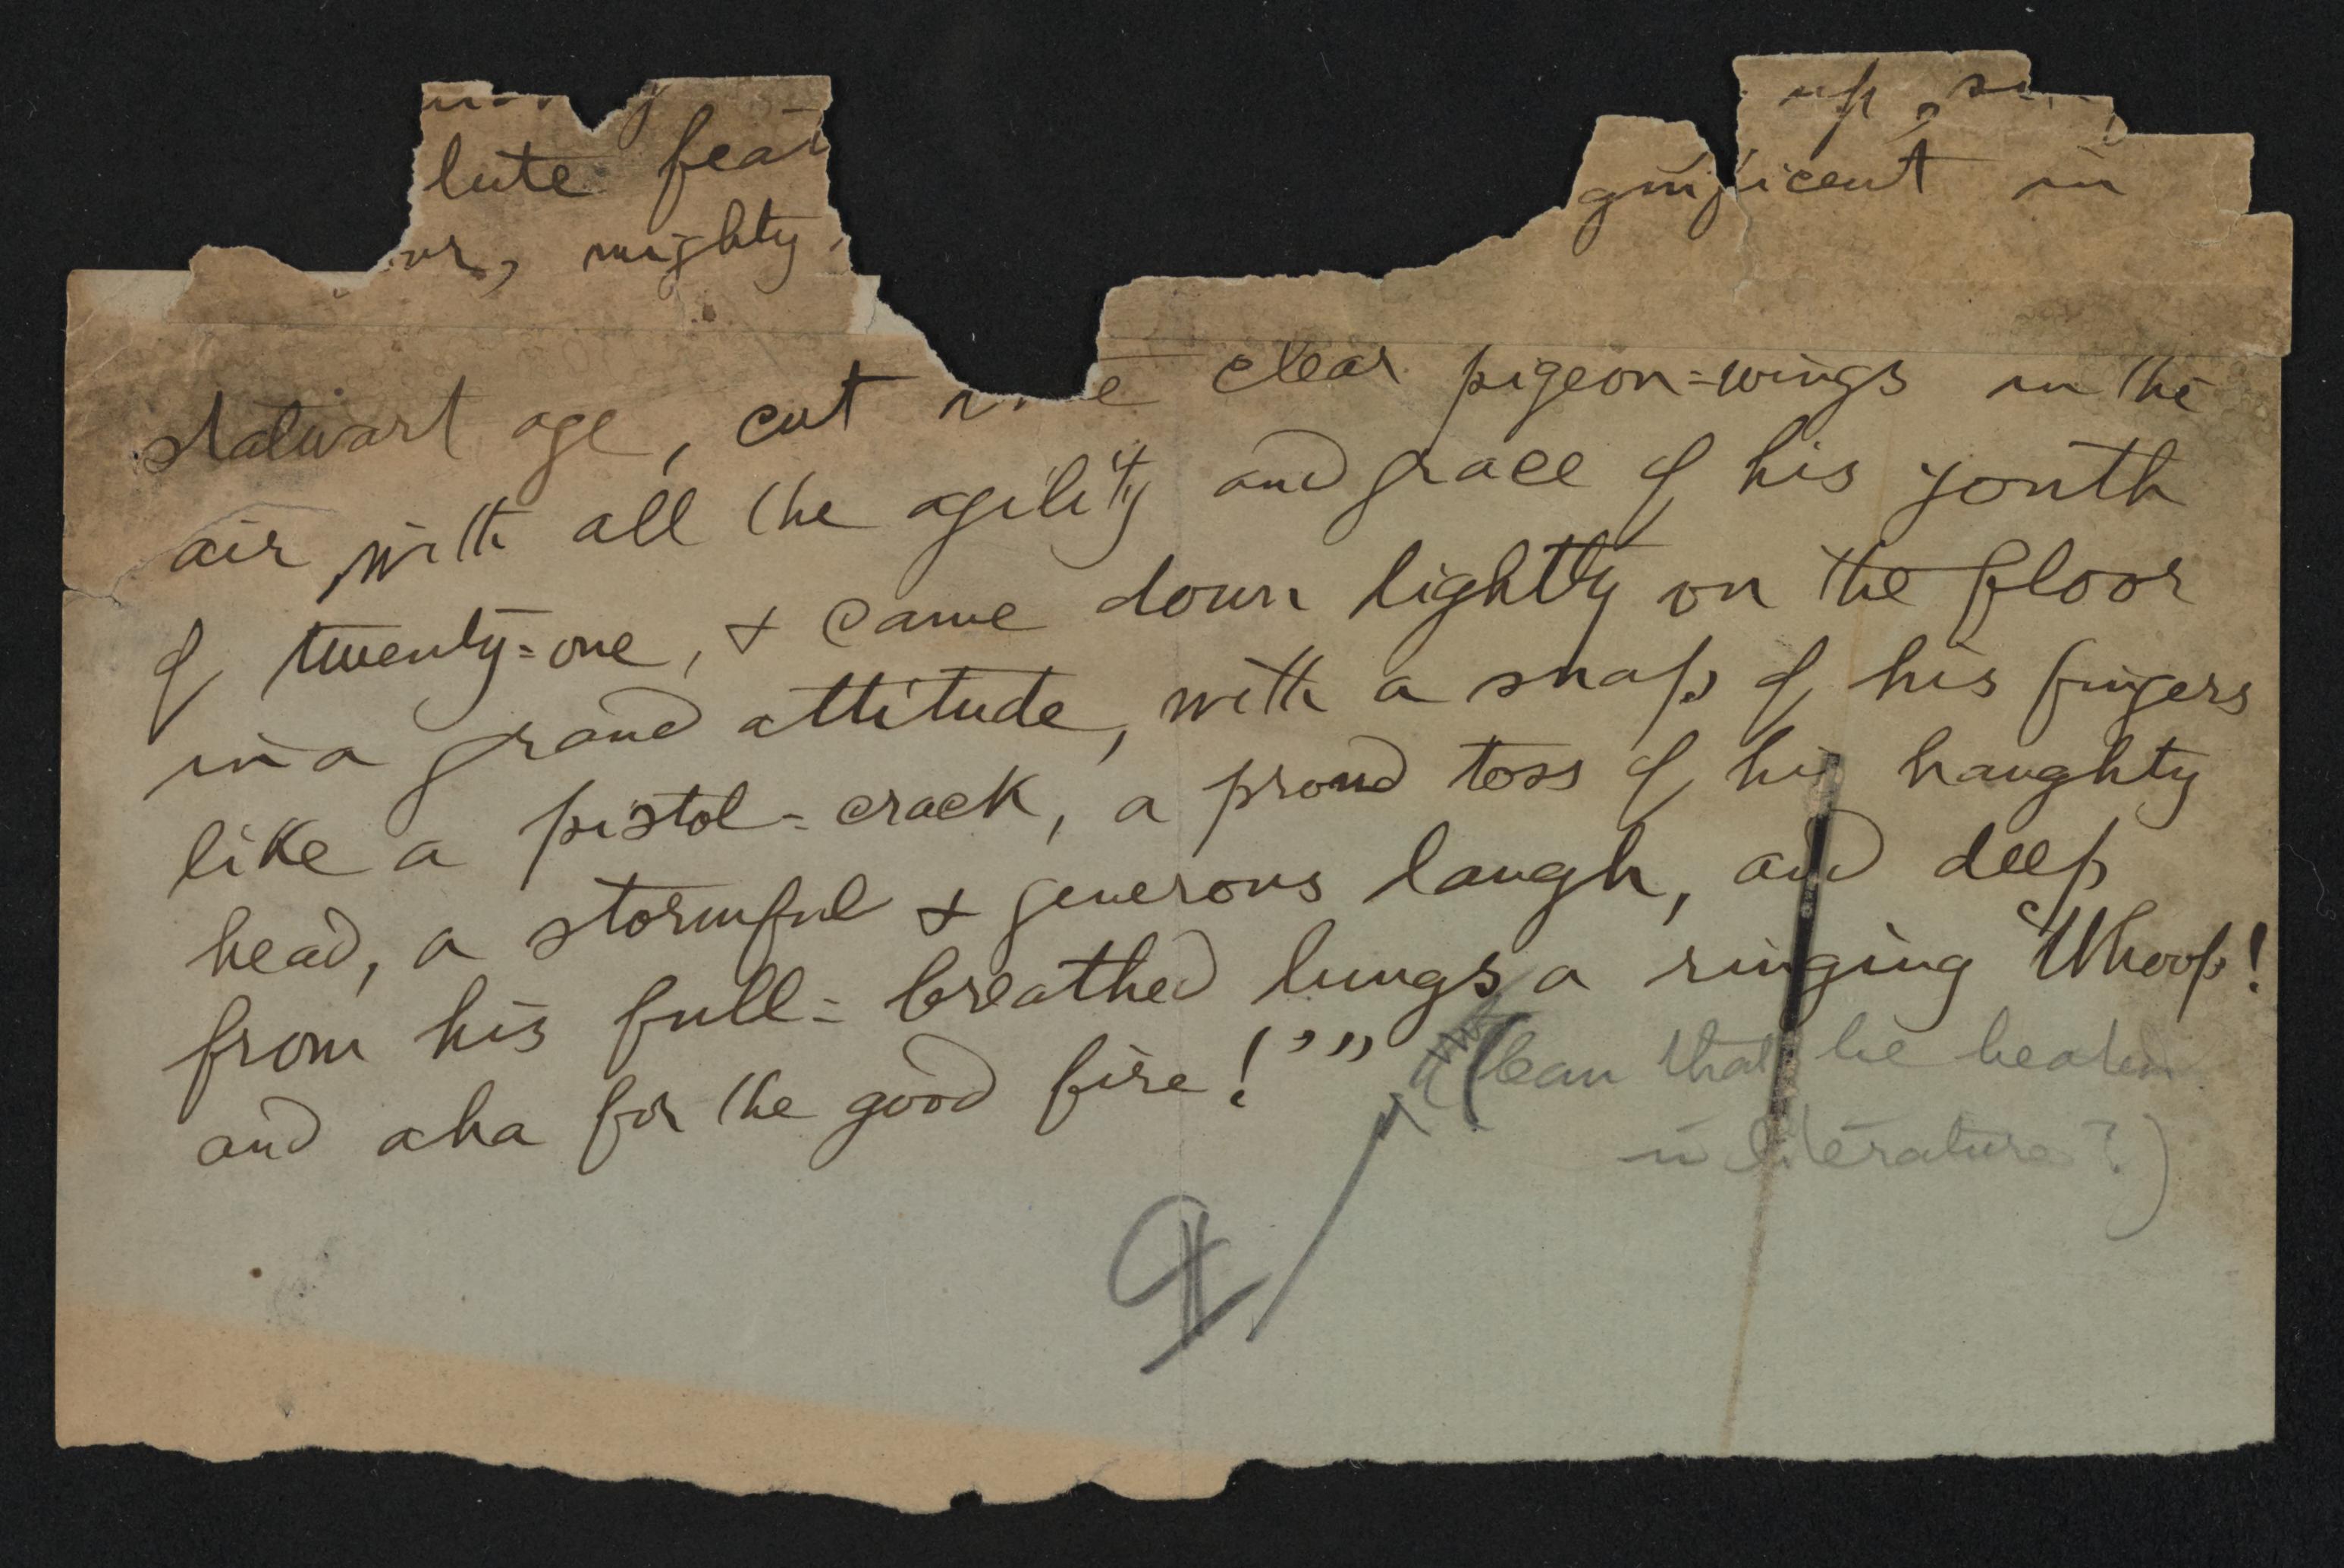 up,
lute feat
gnificent in
mighty
stalwart age, cut clear pigeon=wings in the
air, with all the agility and grace of his youth
of twenty=one, & came down lightly on the floor
in a grand attitude, with a snap of his fingers
like a pistol=crack, a proud toss of his haughty
head, a stormful & generous laugh, and deep
from his full=breathed lungs a ringing 'Whoop!
and aha for the good fire!'"
(Can that be beaten
in literature?)